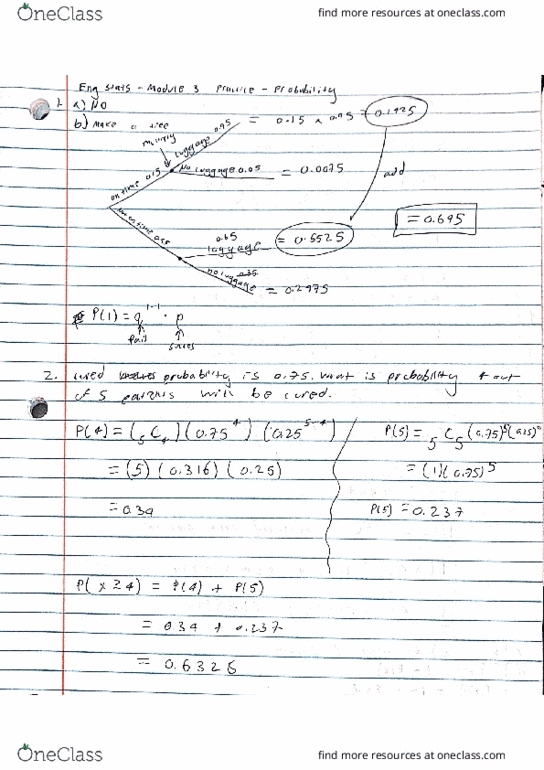 OneClass
find more resources at oneclass.com
Eng stats - Module 3 Practice - Probability
1. a) NO
b) Make a tree
multiply
luggage 0.95
= 0.15 x 0.95 = 0.1425
on time 0.15
No luggage 0.05
= 0.0075
add
= 0.695
not on time 0.85
0.65
luggage
= 0.5525
no luggage 0.35
= 0.2975
P(1) = q^1-1 · p
fail
success
2. cured probability is 0.75. what is probability 4 out
of 5 patients will be cured.
P(4) = (5C4)(0.75^4)(0.25^5-4)
= (5)(0.316)(0.25)
= 0.39
P(5) = 5C5(0.75)^5(0.25)^0
= (1)(0.75)^5
P(5) = 0.237
P(x≥4) = P(4) + P(5)
= 0.39 + 0.237
= 0.6328
OneClass
find more resources at oneclass.com